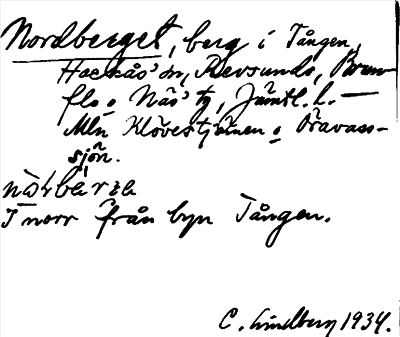 Nordberget, berg i Tången,
Hackås' sn, Revsunds, Brun-
flo o Näs' tg, Jämtl. l. –
Mln Klövestjärnen o Övavass-
sjön.
I norr från byn Tången.
C. Lindberg 1934.